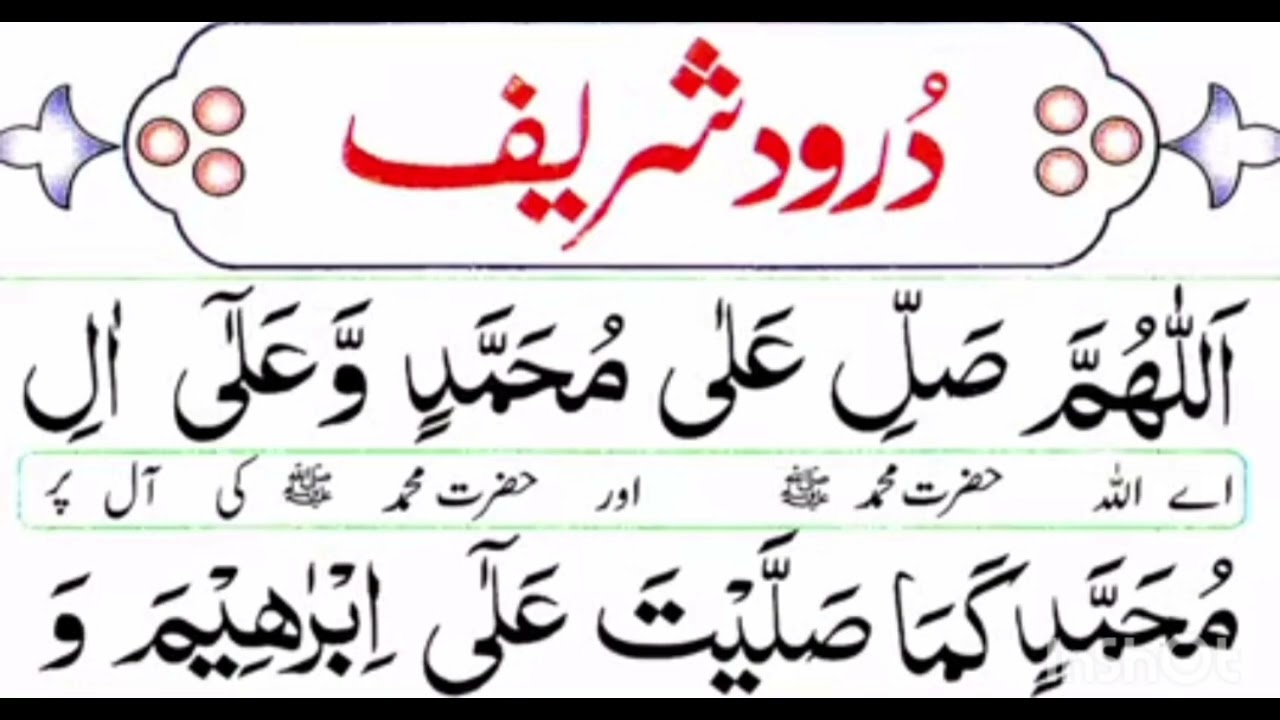 دُرود شریف
اَللّٰهُمَّ صَلِّ عَلٰی مُحَمَّدٍ وَّعَلٰۤی اٰلِ
اے اللہ حضرت محمد ﷺ اور حضرت محمد ﷺ کی آل پر
مُحَمَّدٍ كَمَا صَلَّیْتَ عَلٰۤی اِبْرٰهِیْمَ وَ
InShOt